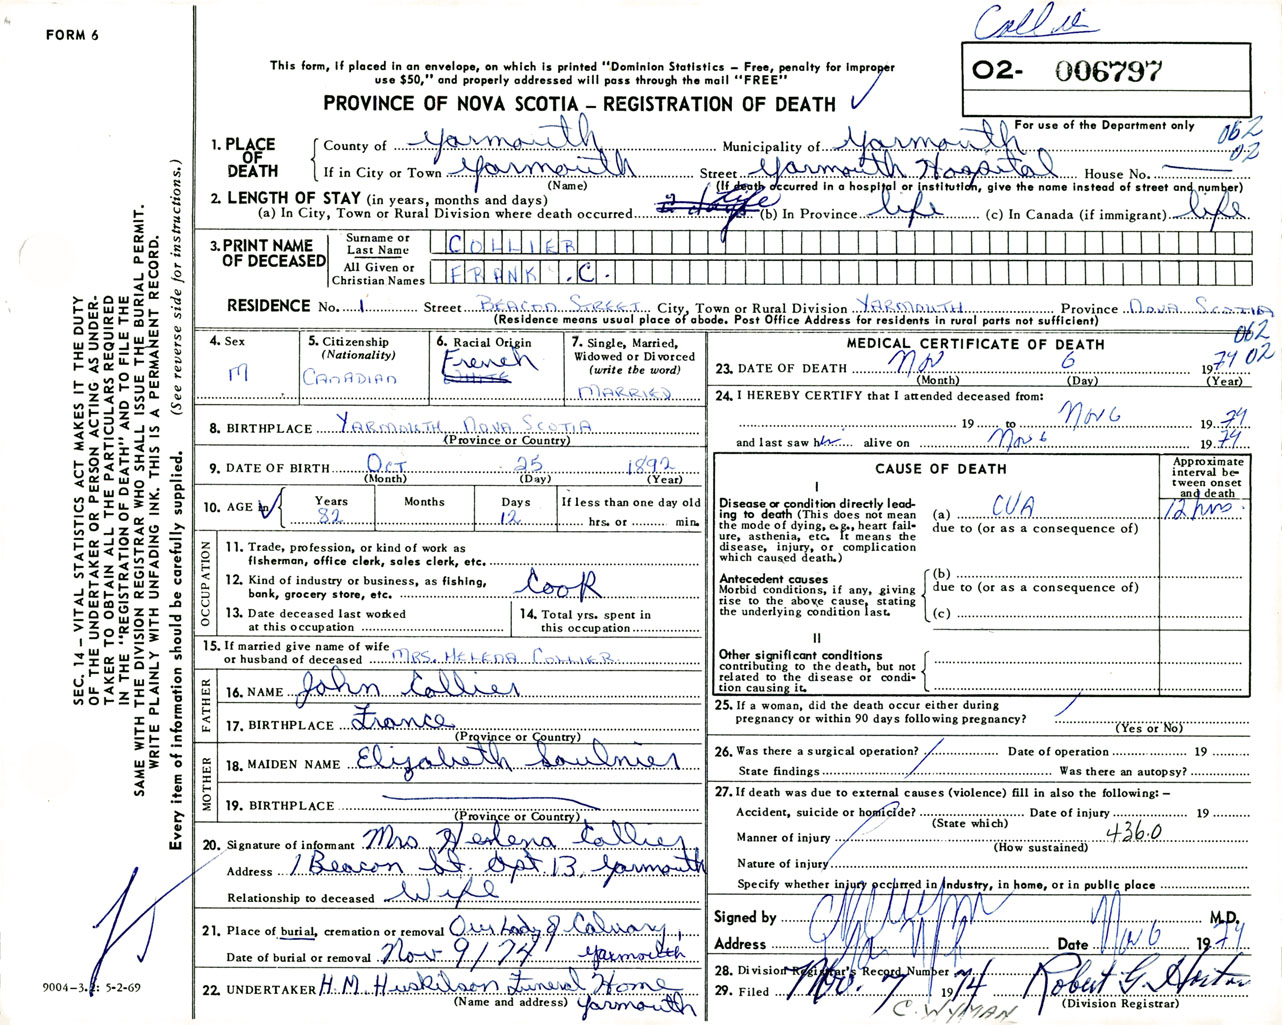 Collie
FORM 6
This form, if placed in an envelope, on which is printed "Dominion Statistics – Free, penalty for improper
use $50," and properly addressed will pass through the mail "FREE"
O2- 006797
PROVINCE OF NOVA SCOTIA – REGISTRATION OF DEATH ✓
For use of the Department only
062
02
1. PLACE OF DEATH
County of Yarmouth Municipality of Yarmouth
If in City or Town Yarmouth Street Yarmouth Hospital House No. —
(Name) (If death occurred in a hospital or institution, give the name instead of street and number)
2. LENGTH OF STAY (in years, months and days)
(a) In City, Town or Rural Division where death occurred life (b) In Province life (c) In Canada (if immigrant) life
3. PRINT NAME OF DECEASED
Surname or Last Name COLLIER
All Given or Christian Names FRANK .C.
RESIDENCE No. 1 Street BEACON STREET City, Town or Rural Division YARMOUTH Province NOVA SCOTIA
(Residence means usual place of abode. Post Office Address for residents in rural parts not sufficient)
062
02
4. Sex M
5. Citizenship (Nationality) CANADIAN
6. Racial Origin French WHITE
7. Single, Married, Widowed or Divorced (write the word) MARRIED
8. BIRTHPLACE YARMOUTH NOVA SCOTIA
(Province or Country)
9. DATE OF BIRTH Oct 25 1892
(Month) (Day) (Year)
10. AGE in Years 82 Months Days 12 If less than one day old hrs. or min.
OCCUPATION
11. Trade, profession, or kind of work as
fisherman, office clerk, sales clerk, etc.
12. Kind of industry or business, as fishing,
bank, grocery store, etc. Cook
13. Date deceased last worked
at this occupation
14. Total yrs. spent in
this occupation
15. If married give name of wife
or husband of deceased MRS. HELENA COLLIER
FATHER
16. NAME John Collier
17. BIRTHPLACE France
(Province or Country)
MOTHER
18. MAIDEN NAME Elizabeth Saulnier
19. BIRTHPLACE
(Province or Country)
20. Signature of informant Mrs Helena Collier
Address 1 Beacon St. Apt 13, Yarmouth
Relationship to deceased Wife
21. Place of burial, cremation or removal Our Lady of Calvary,
Date of burial or removal Nov 9/74 Yarmouth
22. UNDERTAKER H. M. Huskilson Funeral Home
(Name and address) Yarmouth
MEDICAL CERTIFICATE OF DEATH
23. DATE OF DEATH Nov 6 1974
(Month) (Day) (Year)
24. I HEREBY CERTIFY that I attended deceased from:
19 to Nov 6 1974
and last saw him alive on Nov 6 1974
CAUSE OF DEATH
Approximate interval between onset and death
I
Disease or condition directly leading to death (This does not mean the mode of dying, e.g., heart failure, asthenia, etc. It means the disease, injury, or complication which caused death.)
(a) CVA 12 hrs.
due to (or as a consequence of)
Antecedent causes
Morbid conditions, if any, giving rise to the above cause, stating the underlying condition last.
(b)
due to (or as a consequence of)
(c)
II
Other significant conditions
contributing to the death, but not related to the disease or condition causing it.
25. If a woman, did the death occur either during
pregnancy or within 90 days following pregnancy?
(Yes or No)
26. Was there a surgical operation? Date of operation 19
State findings Was there an autopsy?
27. If death was due to external causes (violence) fill in also the following: –
Accident, suicide or homicide? Date of injury 19
(State which)
Manner of injury 436.0
(How sustained)
Nature of injury
Specify whether injury occurred in industry, in home, or in public place
Signed by M.D.
Address Date Nov 6 1974
28. Division Registrar's Record Number
29. Filed Nov. 7 1974 Robert G. Horton
(Division Registrar)
C. WYMAN
SEC. 14 – VITAL STATISTICS ACT MAKES IT THE DUTY
OF THE UNDERTAKER OR PERSON ACTING AS UNDER-
TAKER TO OBTAIN ALL THE PARTICULARS REQUIRED
IN THE "REGISTRATION OF DEATH" AND TO FILE THE
SAME WITH THE DIVISION REGISTRAR WHO SHALL ISSUE THE BURIAL PERMIT.
WRITE PLAINLY WITH UNFADING INK. THIS IS A PERMANENT RECORD.
Every item of information should be carefully supplied. (See reverse side for instructions.)
9004-3.2: 5-2-69